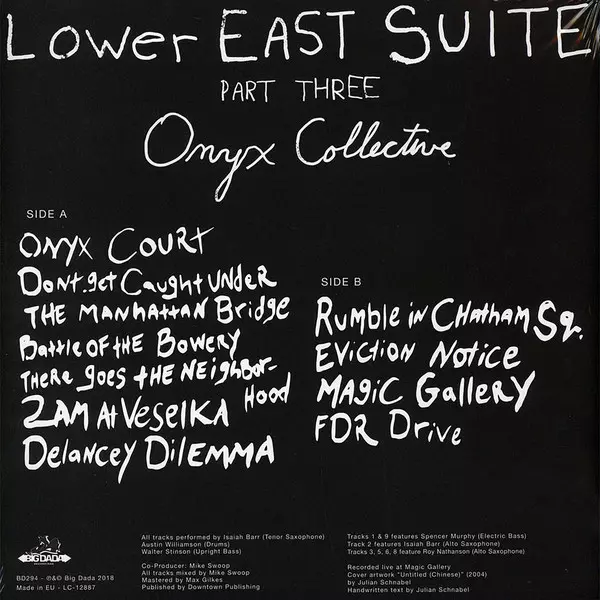 Lower EAST SUITE
PART THREE
Onyx Collective
SIDE A
ONYX COURT
Dont get Caught UNDER
THE MANHATTAN Bridge
Battle OF tHE BOWERY
THERE goes tHE NEIGHBOR-
HOOD
2AM At VESELKA
Delancey DILEMMA
SIDE B
Rumble in CHatHam Sq.
EVICTION NOTICE
MAGIC GALLERY
FDR DRIVE
BIG DADA
BD294 - ℗&© Big Dada 2018
Made in EU - LC-12887
All tracks performed by Isaiah Barr (Tenor Saxophone)
Austin Williamson (Drums)
Walter Stinson (Upright Bass)
Co-Producer: Mike Swoop
All tracks mixed by Mike Swoop
Mastered by Max Gilkes
Published by Downtown Publishing
Tracks 1 & 9 features Spencer Murphy (Electric Bass)
Track 2 features Isaiah Barr (Alto Saxophone)
Tracks 3, 5, 6, 8 feature Roy Nathanson (Alto Saxophone)
Recorded live at Magic Gallery
Cover artwork "Untitled (Chinese)" (2004)
by Julian Schnabel
Handwritten text by Julian Schnabel